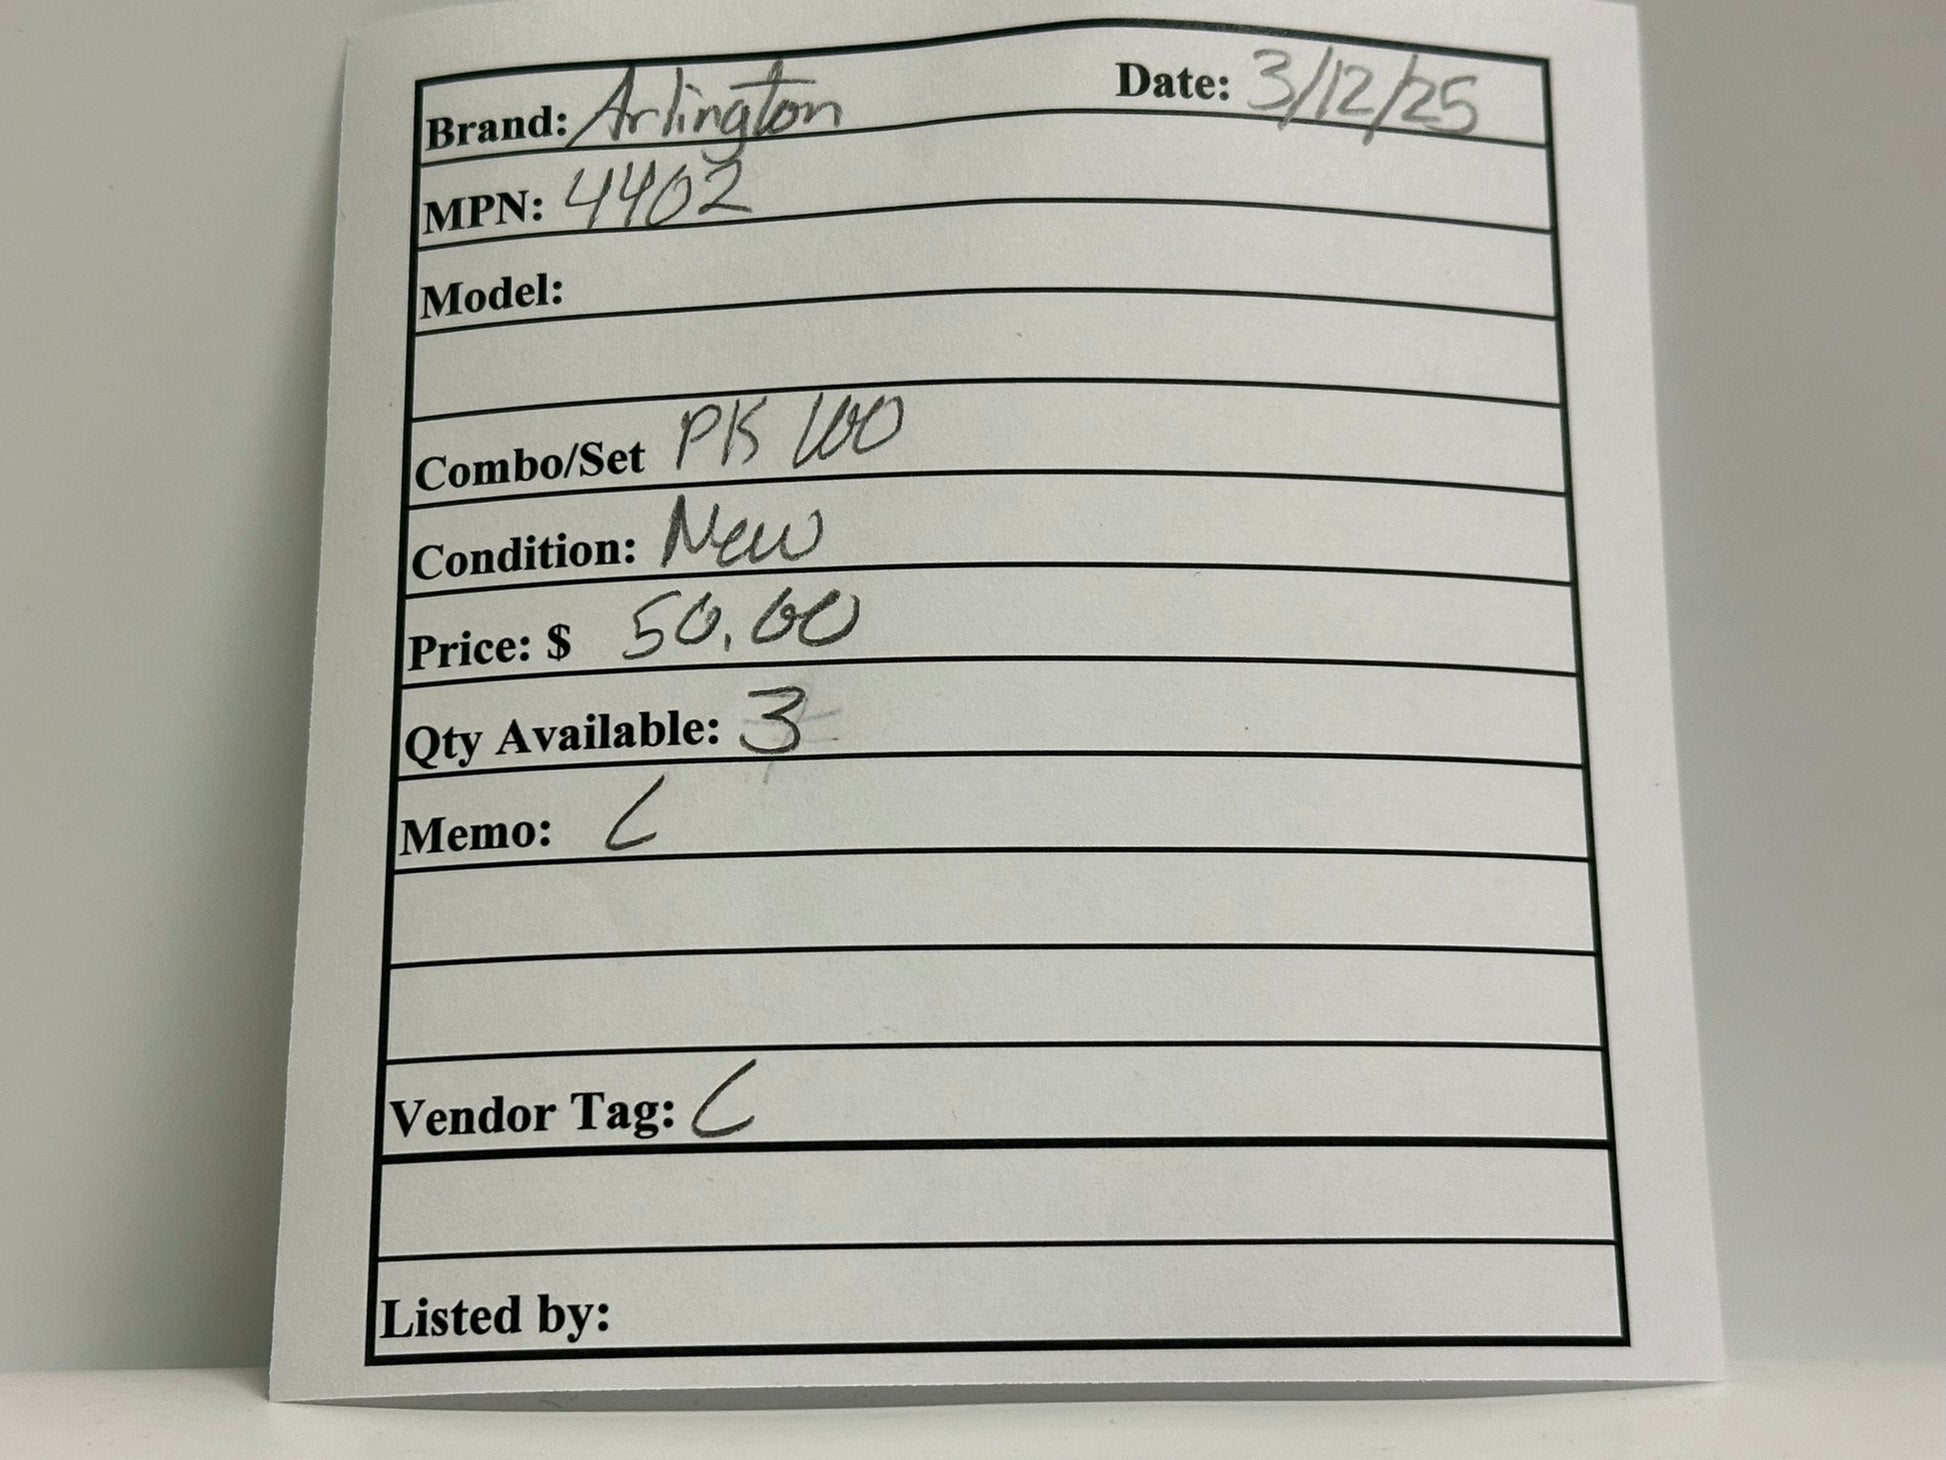 Brand: Arlington Date: 3/12/25
MPN: 4402
Model:
Combo/Set PK 100
Condition: New
Price: $ 50.00
Qty Available: 3
Memo: C
Vendor Tag: C
Listed by: